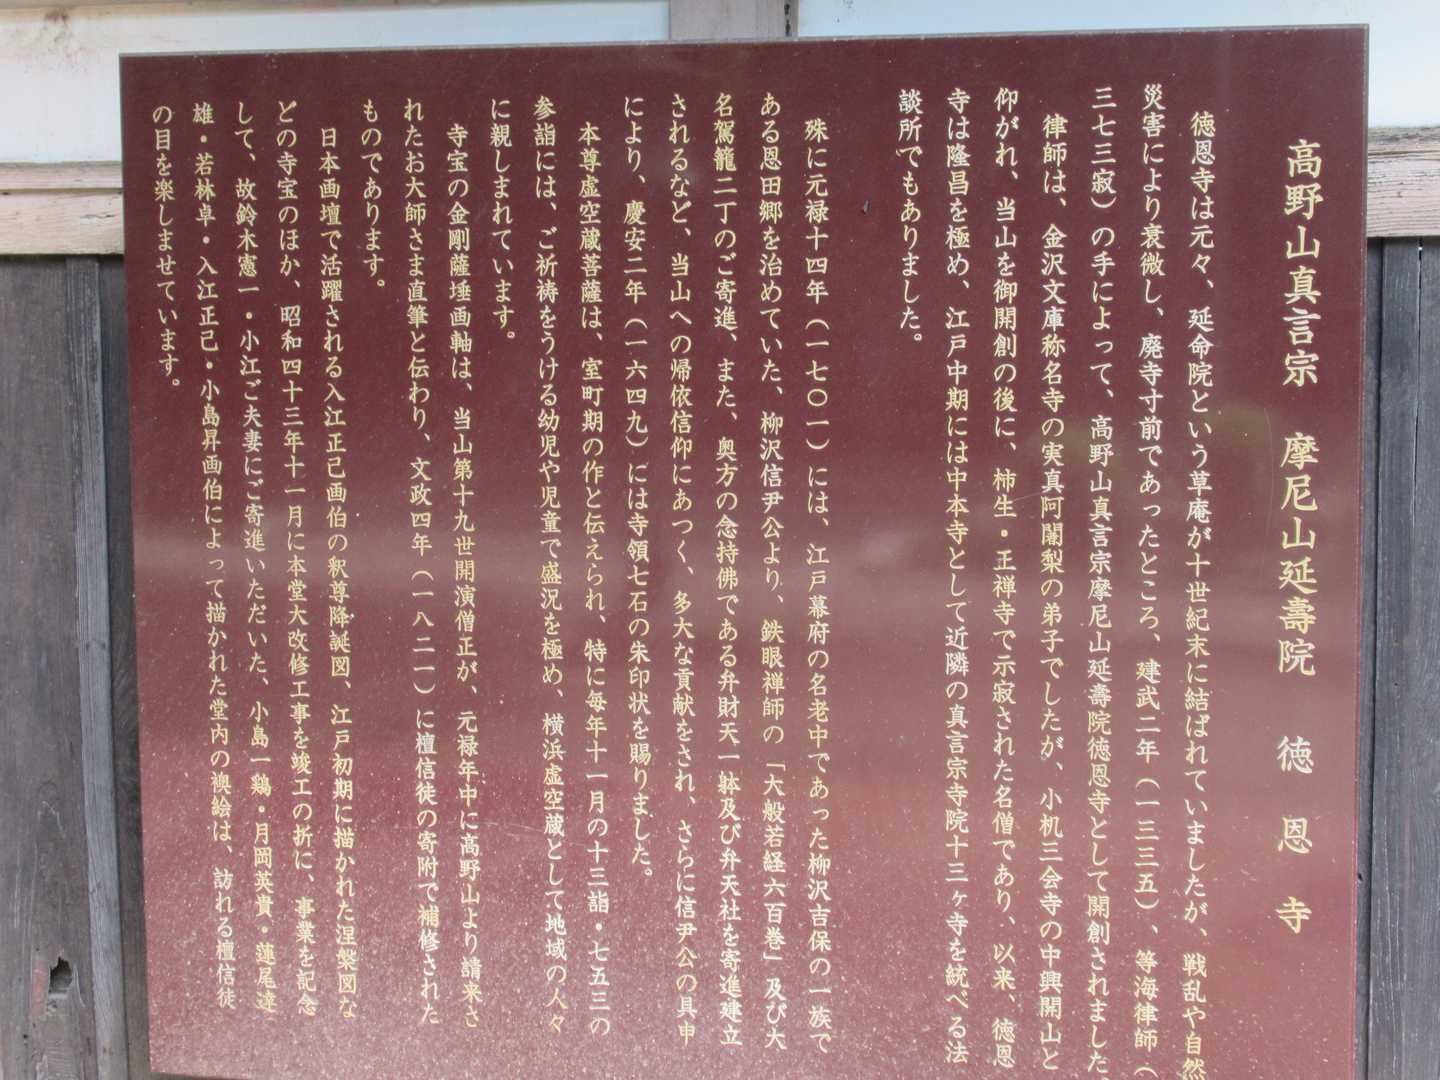 高野山真言宗 摩尼山延壽院 徳恩寺
徳恩寺は元々、延命院という草庵が十世紀末に結ばれていましたが、戦乱や自然
災害により衰微し、廃寺寸前であったところ、建武二年(一三三五)、等海律師(
三七三寂)の手によって、高野山真言宗摩尼山延壽院徳恩寺として開創されました。
律師は、金沢文庫称名寺の実真阿闍梨の弟子でしたが、小机三会寺の中興開山と
仰がれ、当山を御開創の後に、柿生・正禅寺で示寂された名僧であり、以来、徳恩
寺は隆昌を極め、江戸中期には中本寺として近隣の真言宗寺院十三ヶ寺を統べる法
談所でもありました。
殊に元禄十四年(一七〇一)には、江戸幕府の名老中であった柳沢吉保の一族で
ある恩田郷を治めていた、柳沢信尹公より、鉄眼禅師の「大般若経六百巻」及び大
名駕籠二丁のご寄進、また、奥方の念持佛である弁財天一躰及び弁天社を寄進建立
されるなど、当山への帰依信仰にあつく、多大な貢献をされ、さらに信尹公の具申
により、慶安二年(一六四九)には寺領七石の朱印状を賜りました。
本尊虚空蔵菩薩は、室町期の作と伝えられ、特に毎年十一月の十三詣・七五三の
参詣には、ご祈祷をうける幼児や児童で盛況を極め、横浜虚空蔵として地域の人々
に親しまれています。
寺宝の金剛薩埵画軸は、当山第十九世開演僧正が、元禄年中に高野山より請来さ
れたお大師さま直筆と伝わり、文政四年(一八二一)に檀信徒の寄附で補修された
ものであります。
日本画壇で活躍される入江正己画伯の釈尊降誕図、江戸初期に描かれた涅槃図な
どの寺宝のほか、昭和四十三年十一月に本堂大改修工事を竣工の折に、事業を記念
して、故鈴木憲一・小江ご夫妻にご寄進いただいた、小島一鶏・月岡英貴・蓮尾達
雄・若林卓・入江正己・小島昇画伯によって描かれた堂内の襖絵は、訪れる檀信徒
の目を楽しませています。